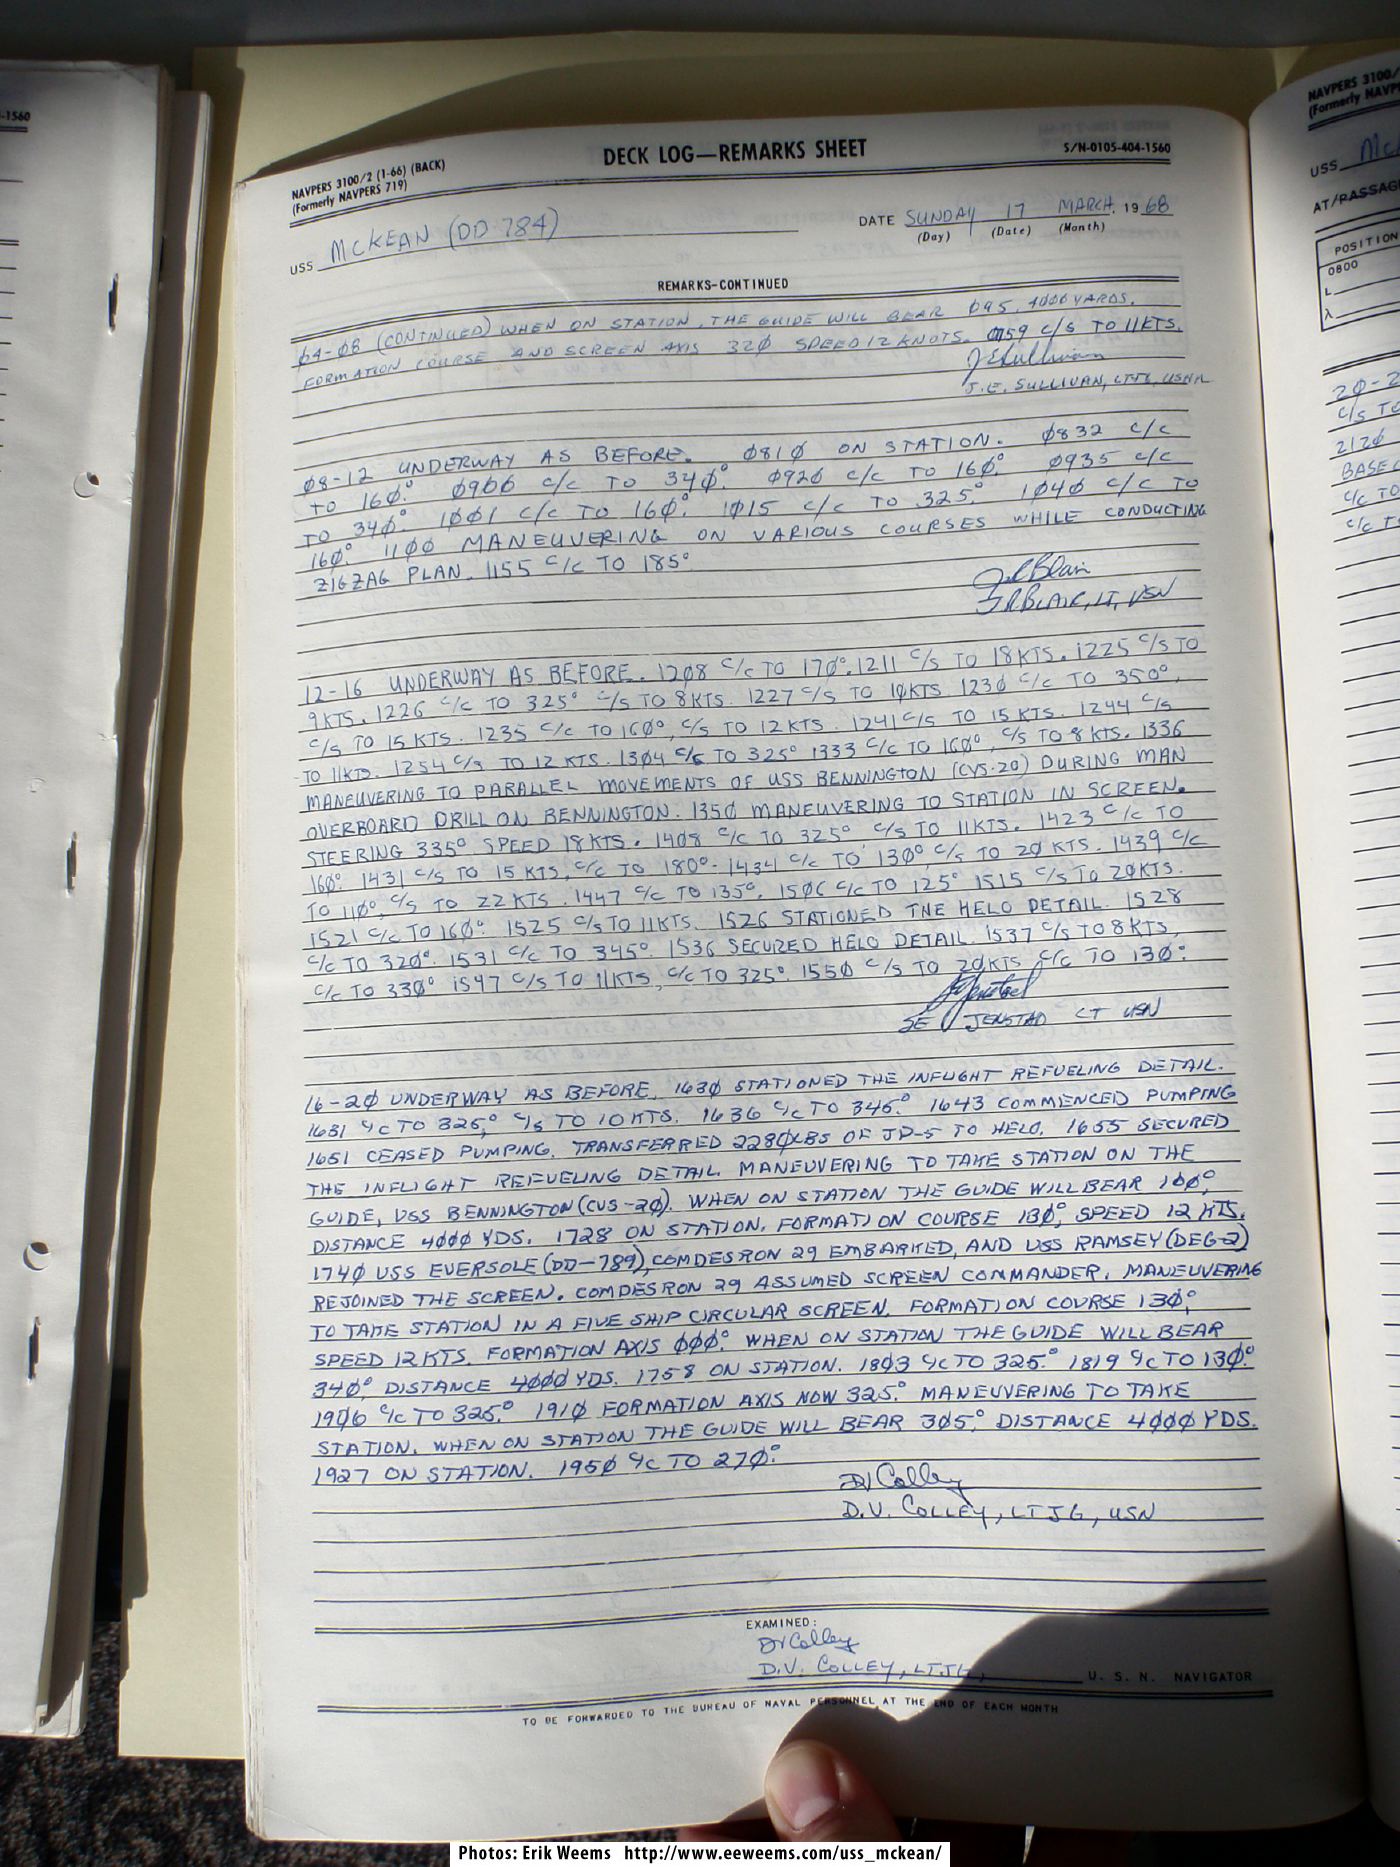 -1560
NAVPERS 3100/2 (1-66) (BACK)
(Formerly NAVPERS 719)
DECK LOG—REMARKS SHEET
S/N-0105-404-1560
USS MCKEAN (DD 784)
DATE SUNDAY 17 MARCH, 19 68
(Day) (Date) (Month)
REMARKS-CONTINUED
Ø4-Ø8 (CONTINUED) WHEN ON STATION, THE GUIDE WILL BEAR Ø95, 4000 YARDS.
FORMATION COURSE AND SCREEN AXIS 32Ø SPEED 12 KNOTS. Ø759 C/S TO 11KTS.
J E Sullivan
J.E. SULLIVAN, LTJG, USNR
Ø8-12 UNDERWAY AS BEFORE. Ø81Ø ON STATION. Ø832 C/C
TO 16Ø°. Ø9ØØ C/C TO 34Ø°. Ø92Ø C/C TO 16Ø°. Ø935 C/C
TO 34Ø°. 1ØØ1 C/C TO 16Ø°. 1Ø15 C/C TO 325°. 1Ø4Ø C/C TO
16Ø°. 11ØØ MANEUVERING ON VARIOUS COURSES WHILE CONDUCTING
ZIGZAG PLAN. 1155 C/C TO 185°
J R Blair
J.R. BLAIR, LT, USN
12-16 UNDERWAY AS BEFORE. 12Ø8 C/C TO 17Ø°. 1211 C/S TO 18KTS. 1225 C/S TO
9KTS. 1226 C/C TO 325° C/S TO 8KTS. 1227 C/S TO 1ØKTS 123Ø C/C TO 35Ø°,
C/S TO 15 KTS. 1235 C/C TO 16Ø°, C/S TO 12 KTS. 1241 C/S TO 15 KTS. 1244 C/S
TO 11KTS. 1254 C/S TO 12 KTS. 13Ø4 C/C TO 325° 1333 C/C TO 16Ø°, C/S TO 8 KTS. 1336
MANEUVERING TO PARALLEL MOVEMENTS OF USS BENNINGTON (CVS-20) DURING MAN
OVERBOARD DRILL ON BENNINGTON. 135Ø MANEUVERING TO STATION IN SCREEN.
STEERING 335° SPEED 18 KTS. 14Ø8 C/C TO 325° C/S TO 11KTS. 1423 C/C TO
16Ø°. 1431 C/S TO 15 KTS, C/C TO 18Ø°. 1434 C/C TO 13Ø°, C/S TO 2Ø KTS. 1439 C/C
TO 11Ø°, C/S TO 22 KTS. 1447 C/C TO 135°. 15Ø6 C/C TO 125° 1515 C/S TO 2ØKTS.
1521 C/C TO 16Ø°. 1525 C/S TO 11KTS. 1526 STATIONED THE HELO DETAIL. 1528
C/C TO 32Ø°. 1531 C/C TO 345°. 1536 SECURED HELO DETAIL. 1537 C/S TO 8 KTS,
C/C TO 33Ø° 1547 C/S TO 11KTS, C/C TO 325°. 155Ø C/S TO 2ØKTS C/C TO 13Ø°.
SE Jenstad
SE JENSTAD LT USN
16-2Ø UNDERWAY AS BEFORE. 163Ø STATIONED THE INFLIGHT REFUELING DETAIL.
1631 C/C TO 325°, C/S TO 10 KTS. 1636 C/C TO 345°. 1643 COMMENCED PUMPING
1651 CEASED PUMPING. TRANSFERRED 228Ø LBS OF JP-5 TO HELO. 1655 SECURED
THE INFLIGHT REFUELING DETAIL. MANEUVERING TO TAKE STATION ON THE
GUIDE, USS BENNINGTON (CVS-2Ø). WHEN ON STATION THE GUIDE WILL BEAR 1ØØ°,
DISTANCE 4ØØØ YDS. 1728 ON STATION. FORMATION COURSE 13Ø°, SPEED 12 KTS.
174Ø USS EVERSOLE (DD-789), COMDESRON 29 EMBARKED, AND USS RAMSEY (DEG-2)
REJOINED THE SCREEN. COMDESRON 29 ASSUMED SCREEN COMMANDER. MANEUVERING
TO TAKE STATION IN A FIVE SHIP CIRCULAR SCREEN. FORMATION COURSE 13Ø°,
SPEED 12 KTS. FORMATION AXIS ØØØ°. WHEN ON STATION THE GUIDE WILL BEAR
34Ø°, DISTANCE 4ØØØ YDS. 1758 ON STATION. 18Ø3 C/C TO 325°. 1819 C/C TO 13Ø°.
19Ø6 C/C TO 325°. 191Ø FORMATION AXIS NOW 325°. MANEUVERING TO TAKE
STATION. WHEN ON STATION THE GUIDE WILL BEAR 3Ø5°, DISTANCE 4ØØØ YDS.
1927 ON STATION. 195Ø C/C TO 27Ø°.
DV Colley
D.V. COLLEY, LTJG, USN
EXAMINED:
DV Colley
D.V. COLLEY, LTJG, U. S. N. NAVIGATOR
TO BE FORWARDED TO THE BUREAU OF NAVAL PERSONNEL AT THE END OF EACH MONTH
NAVPERS 3100/
(Formerly NAVP
USS McK
AT/PASSAG
POSITION
0800
L
λ
2Ø-2
C/S TO
212Ø
BASE C
C/C TO
C/C TO
Photos: Erik Weems http://www.eeweems.com/uss_mckean/